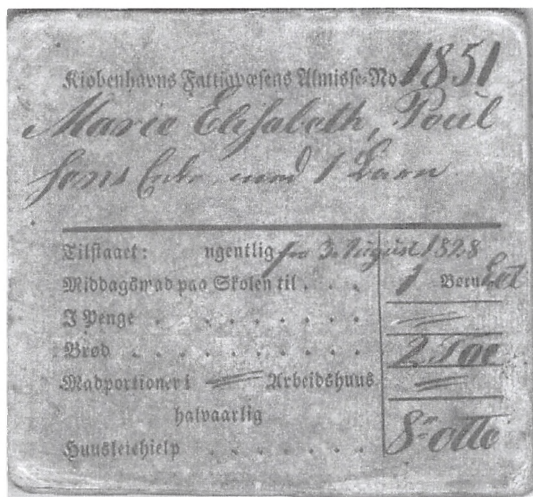 Kiøbenhavns Fattigvæsens Almisse-No 1851
Marie Elisabeth, Poul
sens Enke med 1 Barn
Tilstaaet: ugentlig fra 3. August 1828
Middagsmad paa Skolen til . . . 1 Børn Eet
I Penge . . . . . . . =
Brød . . . . . . . 2 Toe
Madportioner i = Arbeidshuus =
halvaarlig
Huusleiehielp . . . . . . 8- otte